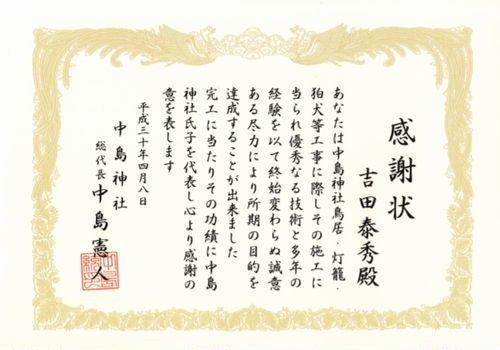 感謝状
吉田泰秀殿
あなたは中島神社鳥居・灯籠・
狛犬等工事に際しその施工に
当られ優秀なる技術と多年の
経験を以て終始変わらぬ誠意
ある尽力により所期の目的を
達成することが出来ました
完工に当たりその功績に中島
神社氏子を代表し心より感謝の
意を表します
平成三十年四月八日
中島神社
総代長 中島憲人